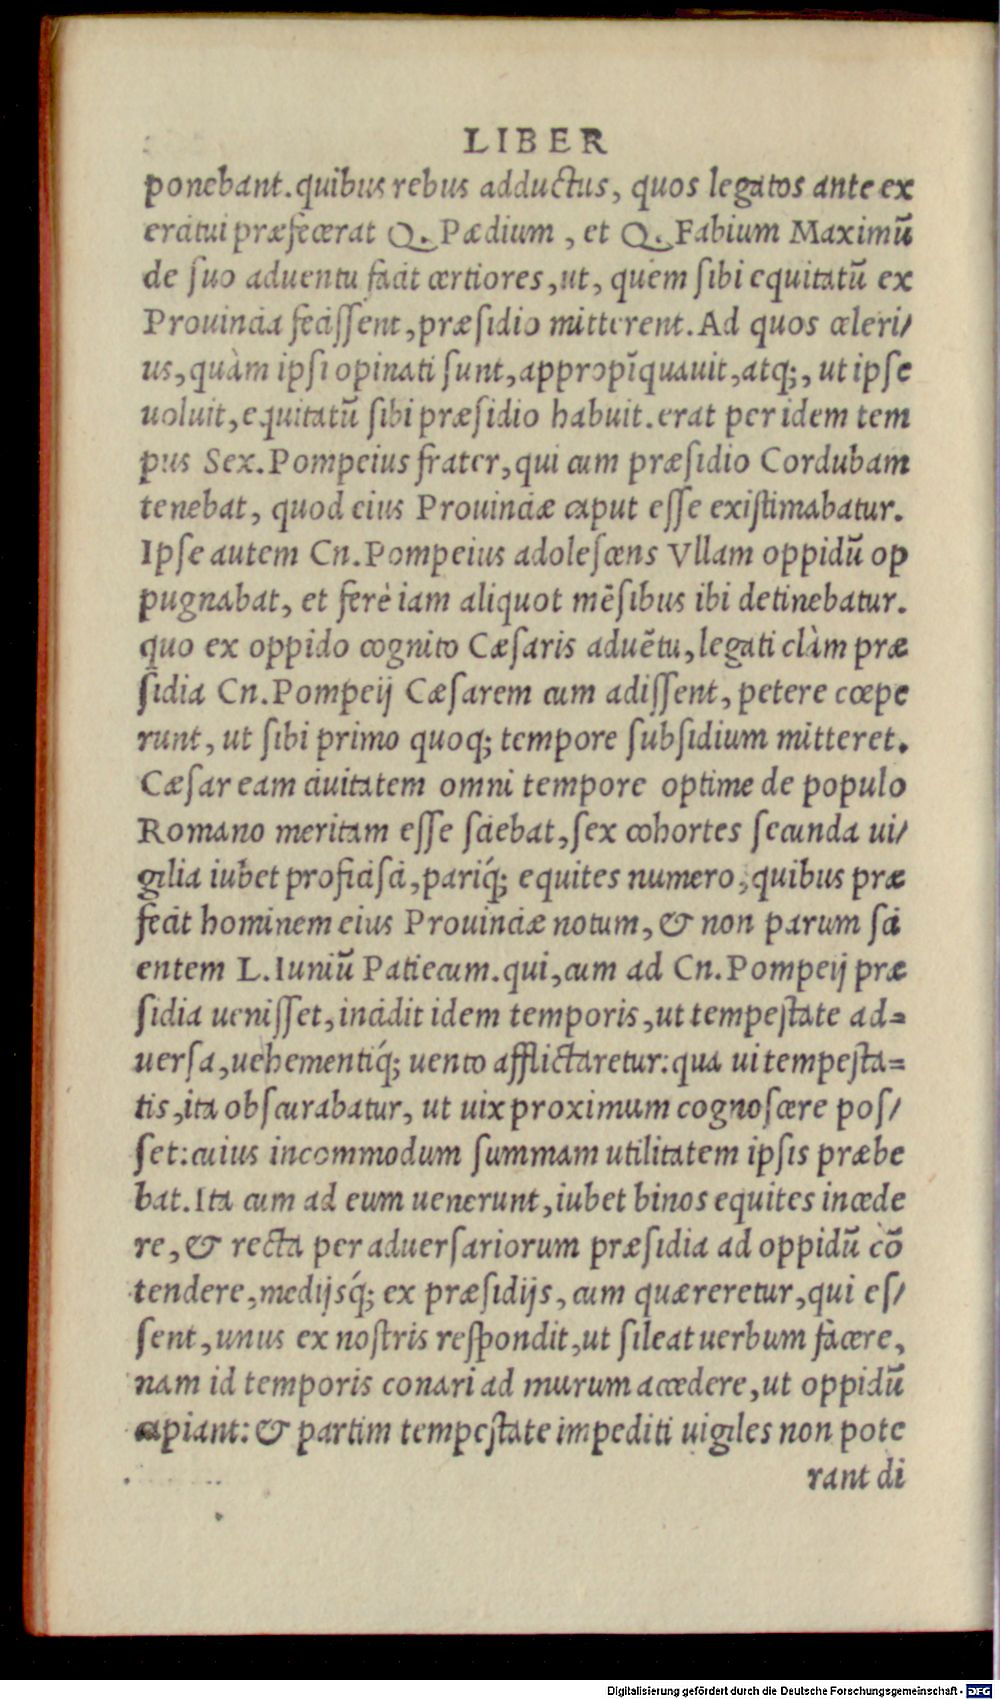 LIBER
ponebant.quibus rebus adductus, quos legatos ante ex
ercitui præfecerat Q. Pædium, et Q. Fabium Maximũ
de suo aduentu facit certiores, ut, quem sibi equitatũ ex
Prouincia fecissent, præsidio mitterent. Ad quos celeri/
us, quàm ipsi opinati sunt, appropĩquauit, atq;, ut ipse
uoluit, equitatũ sibi præsidio habuit. erat per idem tem
pus Sex. Pompeius frater, qui cum præsidio Cordubam
tenebat, quod eius Prouinciæ caput esse existimabatur.
Ipse autem Cn. Pompeius adolescens Vllam oppidũ op
pugnabat, et ferè iam aliquot mẽsibus ibi detinebatur.
quo ex oppido cognito Cæsaris aduẽtu, legati clàm præ
sidia Cn. Pompeij Cæsarem cum adissent, petere cœpe
runt, ut sibi primo quoq; tempore subsidium mitteret.
Cæsar eam ciuitatem omni tempore optime de populo
Romano meritam esse sciebat, sex cohortes secunda ui/
gilia iubet proficisci, pariq́; equites numero, quibus præ
fecit hominem eius Prouinciæ notum, & non parum sci
entem L. Iuniũ Patiecum. qui, cum ad Cn. Pompeij præ
sidia uenisset, incidit idem temporis, ut tempestate ad=
uersa, uehementiq́; uento afflictaretur: qua ui tempesta=
tis, ita obscurabatur, ut uix proximum cognoscere pos/
set: cuius incommodum summam utilitatem ipsis præbe
bat. Ita cum ad eum uenerunt, iubet binos equites incede
re, & recta per aduersariorum præsidia ad oppidũ cõ
tendere, medijsq́; ex præsidijs, cum quæreretur, qui es/
sent, unus ex nostris respondit, ut sileat uerbum facere,
nam id temporis conari ad murum accedere, ut oppidũ
capiant: & partim tempestate impediti uigiles non pote
rant di
Digitalisierung gefördert durch die Deutsche Forschungsgemeinschaft - DFG